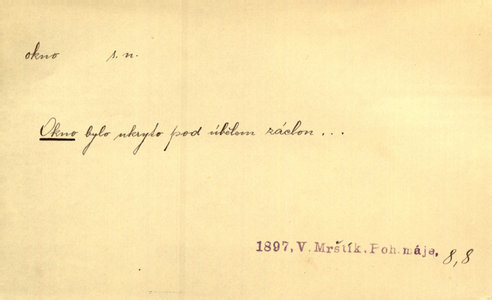 okno s. n.
Okno bylo ukryto pod úbělem záclon...
1897, V. Mrštík. Poh. máje, 8,8